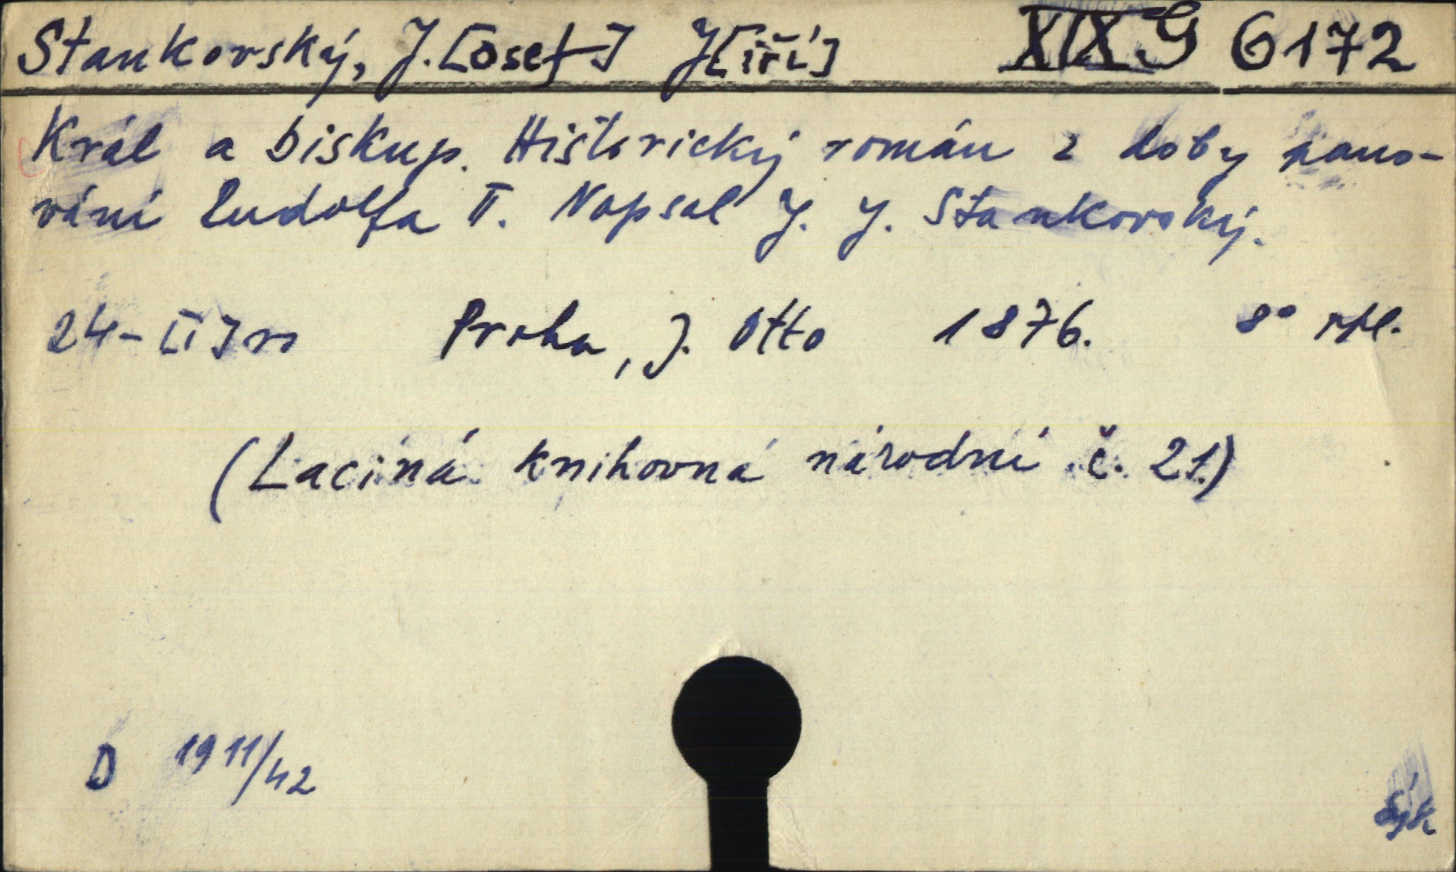 Stankovský, J.[osef] J[iří] XIX G 6172
Král a biskup. Historický román z doby pano-
vání Rudolfa II. Napsal J. J. Stankovský.
24-[I] Praha, J. Otto 1876. 8°
(Laciná knihovna národní č. 21.)
D 1911/42